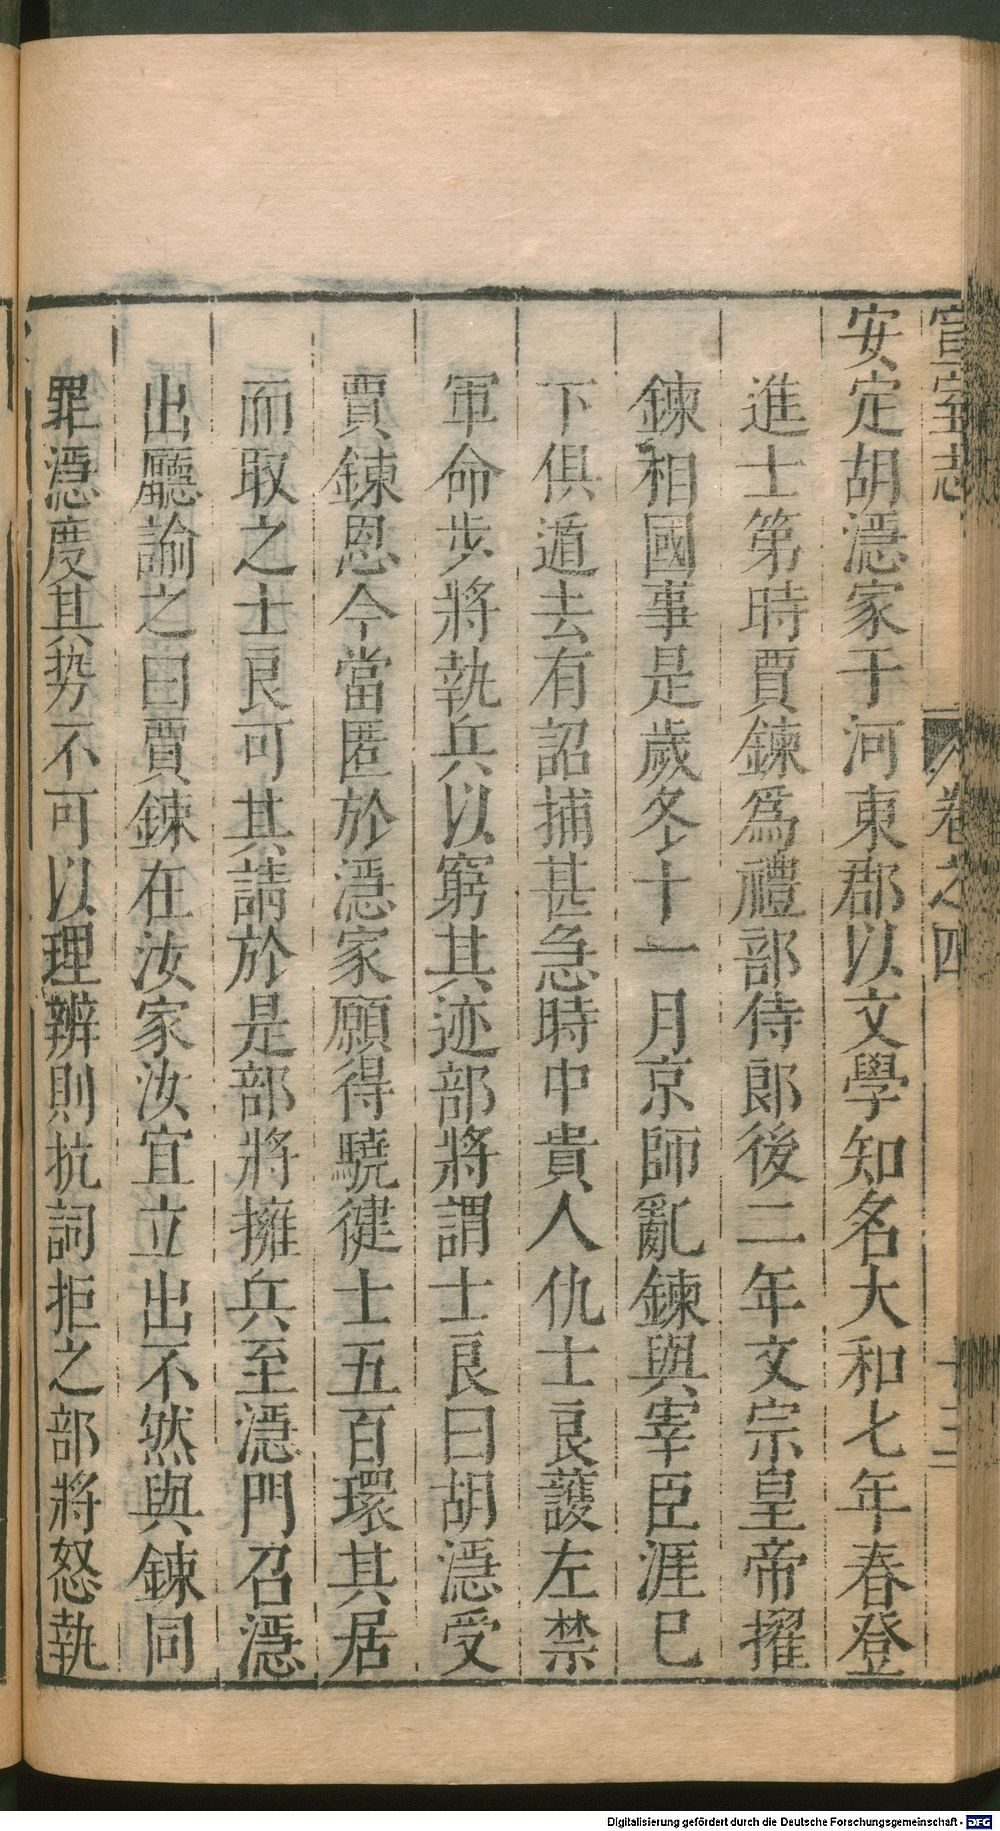 宣室志 卷之四 十三
安定胡濦家于河東郡以文學知名大和七年春登
進士第時賈餗爲禮部侍郎後二年文宗皇帝擢
餗相國事是歲冬十一月京師亂餗與宰臣涯已
下俱遁去有詔捕甚急時中貴人仇士良護左禁
軍命步將執兵以窮其迹部將謂士良曰胡濦受
賈餗恩今當匿於濦家願得驍健士五百環其居
而取之士良可其請於是部將擁兵至濦門召濦
出廳諭之曰賈餗在汝家汝宜立出不然與餗同
罪濦度其势不可以理辨則抗詞拒之部將怒執
Digitalisierung gefördert durch die Deutsche Forschungsgemeinschaft - DFG